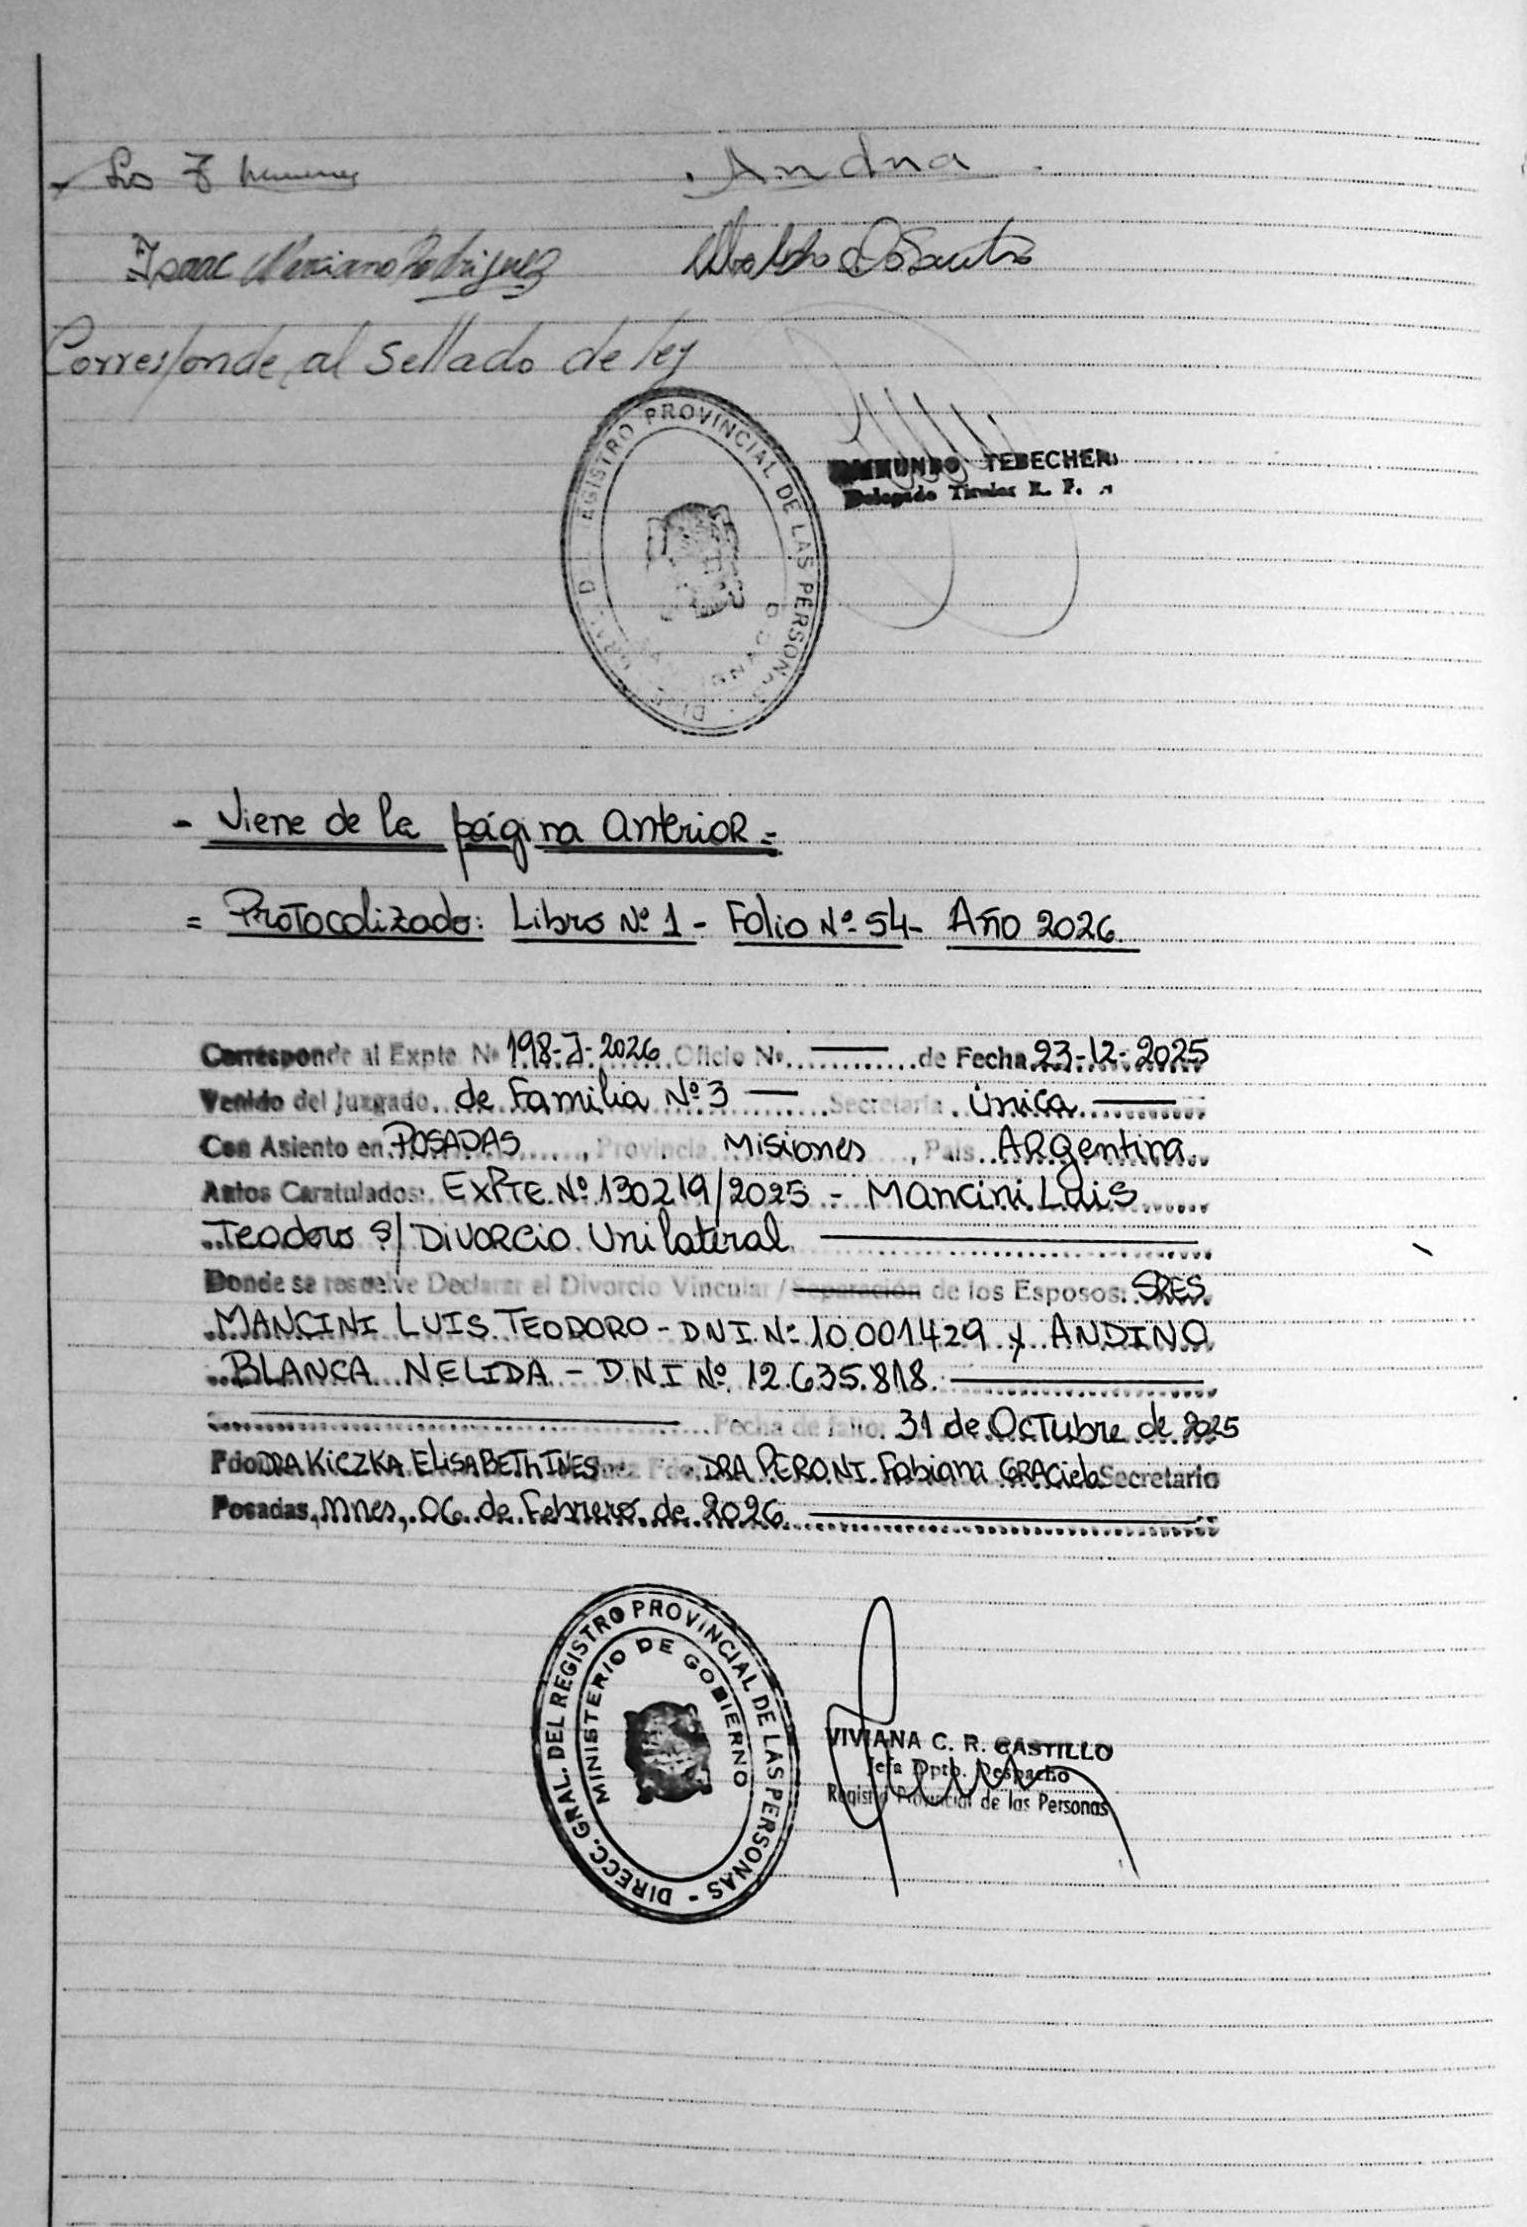 Andina
Isaac Marciano Rodriguez
Corresponde al sellado de ley
REGISTRO PROVINCIAL DE LAS PERSONAS
TEBECHERI
Delegado Titular R. P.
- Viene de la página anterior =
= Protocolizado: Libro Nº 1 - Folio Nº 54 - Año 2026.
Corresponde al Expte. Nº 198-J-2026 Oficio Nº ——— de Fecha 23-12-2025
Venido del Juzgado de Familia Nº 3 — Secretaría Única ———
Con Asiento en POSADAS, Provincia Misiones, País ARgentina
Autos Caratulados: EXPTE. Nº 130219/2025 - Mancini Luis
Teodoro s/ Divorcio Unilateral ———
Donde se resuelve Declarar el Divorcio Vincular / Separación de los Esposos: SRES
MANCINI LUIS TEODORO - DNI. Nº 10.001.429 y ANDINO
BLANCA NELIDA - D.N.I Nº 12.635.818. ———
——— Fecha de fallo: 31 de Octubre de 2025
Fdo DRA KICZKA ELISABETH INES Juez Fdo. DRA PERONI Fabiana GRACiela Secretario
Posadas, Mnes, 06 de Febrero de 2026 ———
DIRECC. GRAL. DEL REGISTRO PROVINCIAL DE LAS PERSONAS -
MINISTERIO DE GOBIERNO
VIVIANA C. R. CASTILLO
Jefa Dpto. Despacho
Registro Provincial de las Personas